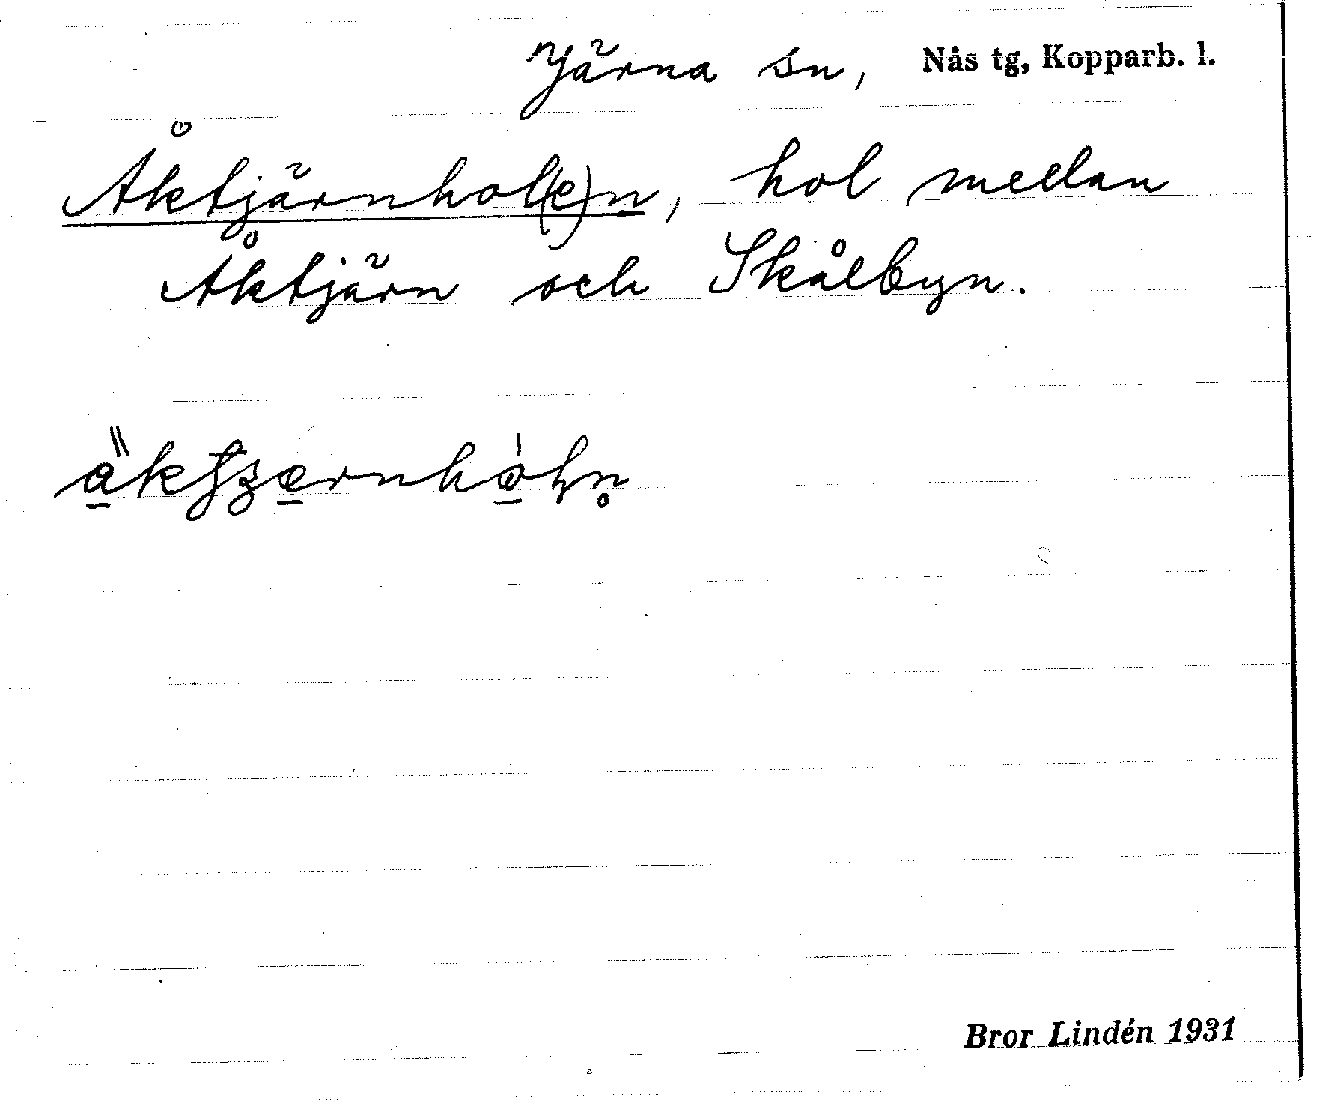 Järna sn, Nås tg, Kopparb. l.
Åktjärnhol(e)n, hol mellan
Åktjärn och Skålbyn.
Bror Lindén 1931